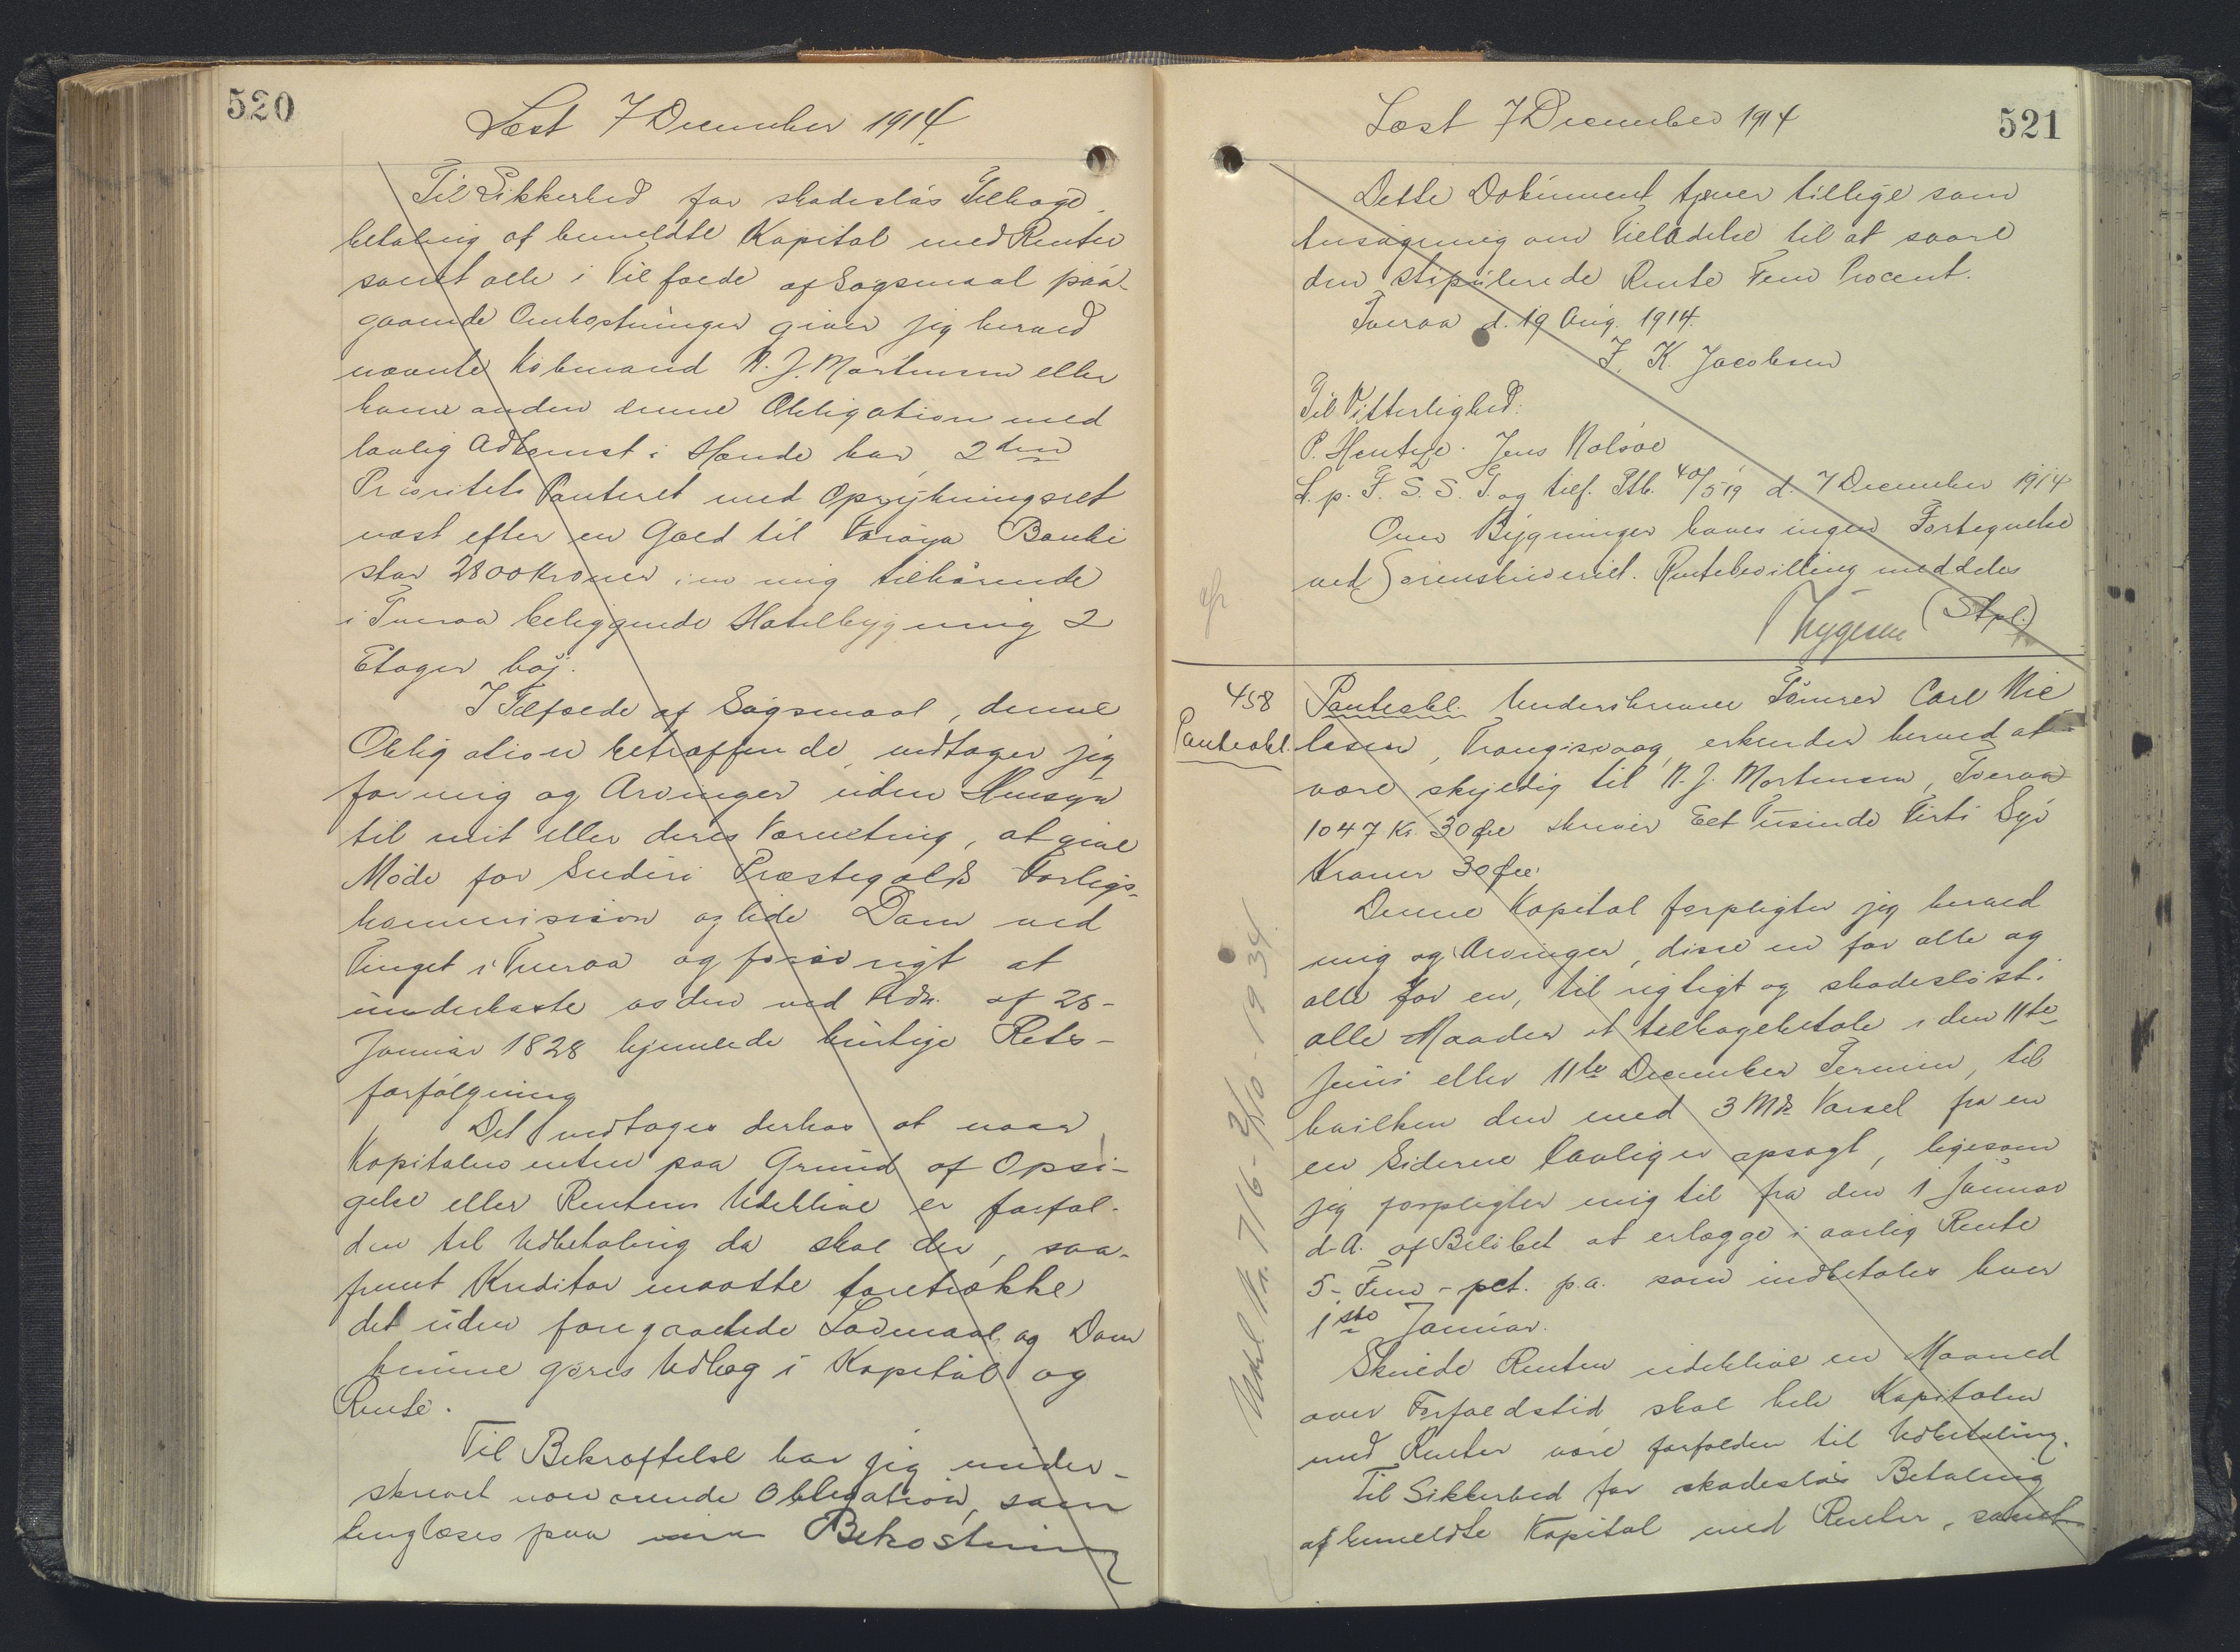 520
Læst 7 December 1914.
Til Sikkerhed for skadesløs Tilbage-
betaling af bemeldte Kapital med Renter
samt alle i Tilfælde af Søgsmaal paa-
gaaende Omkostninger giver jeg herved
nævnte Købmand N. J. Mortensen eller
hvem anden denne Obligation med
lovlig Adkomst i Hænde har, 2den
Prioritets Panteret med Oprykningsret
næst efter en Gæld til Føroya Banki
stor 2800 Kroner i en mig tilhørende
i Tveraa beliggende Hotelbygning 2
Etager høj.
I Tilfælde af Søgsmaal, denne
Obligation betræffende, vedtager jeg
for mig og Arvinger uden Hensyn
til mit eller deres Værneting, at give
Møde for Suderø Præstegælds Forligs-
kommission og lide Dom ved
Tinget i Tveraa og forøvrigt at
underkaste os den ved Frdn. af 28-
Januar 1828 hjemlede hurtige Rets-
forfølgning
Det vedtages derhos at naar
Kapitalen enten paa Grund af Opsi-
gelse eller Rentens Udeblive er forfal-
den til Udbetaling da skal der, saa-
fremt Kreditor maatte foretrække
det uden foregaaende Lovmaal og Dom
kunne gøres Udlæg i Kapital og
Rente.
Til Bekræftelse har jeg under-
skrevet nærværende Obligation, som
tinglæses paa min Bekostning
Læst 7 December 1914
521
Dette Dokument tjener tillige som
Ansøgning om Tilladelse til at svare
den stipulerede Rente Fem Procent.
Tveraa d. 19 Aug. 1914.
J. K. Jacobsen
Til Vitterlighed:
P. Hentze. Jens Nolsøe
L. p. F. S. S. T. og tilf. Ptb. 40/519 d. 7 December 1914
Om Bygninger haves ingen Fortegnelse
ved Sorenskriveriet. Rentebevilling meddeles
Thygesen (Stpl.)
458
Panteobl.
Panteobl. Underskrevne Tømrer Carl Nie
lsen, Trangisvaag, erkender herved at
være skyldig til N. J. Mortensen, Tveraa
1047 Kr. 30 Øre skriver Eet Tusinde Firti Syv
Kroner 30 Øre.
Denne Kapital forpligter jeg herved
mig og Arvinger, disse en for alle og
alle for en, til rigtigt og skadesløst i
alle Maader at tilbagebetale i den 11te
Juni eller 11te December Termin, til
hvilken den med 3 Mdrs Varsel fra en
er Siderne lovlig er opsagt, ligesom
jeg forpligter mig til fra den 1 Januar
d.A. af Beløbet at erlægge i aarlig Rente
5-Fem-pct. p.a. som indbetales hver
1ste Januar.
Skulde Renten udeblive en Maaned
over Forfaldstid skal hele Kapitalen
med Renter være forfalden til Udbetaling.
Til Sikkerhed for skadesløs Betaling
af bemeldte Kapital med Renter, samt